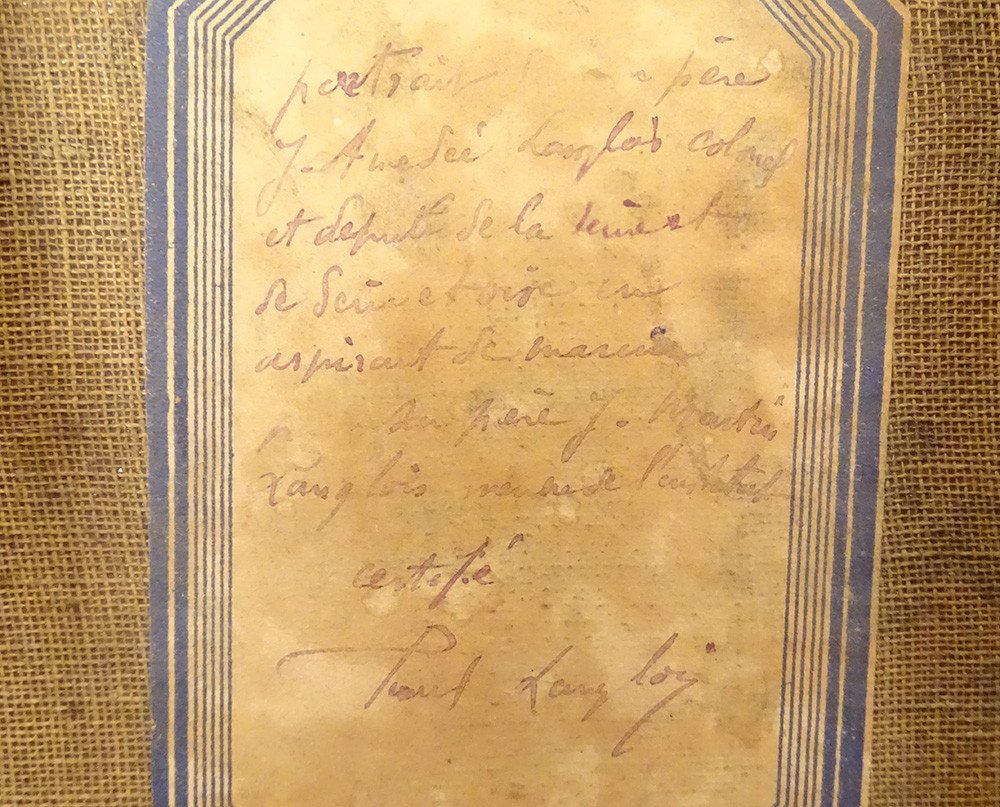 portrait de père
J. Amedée Langlois colonel
et deputé de la seine et
de seine et oise en
aspirant de marine
son père J. Martin
Langlois membre de l'institut
certifié
Paul Langlois